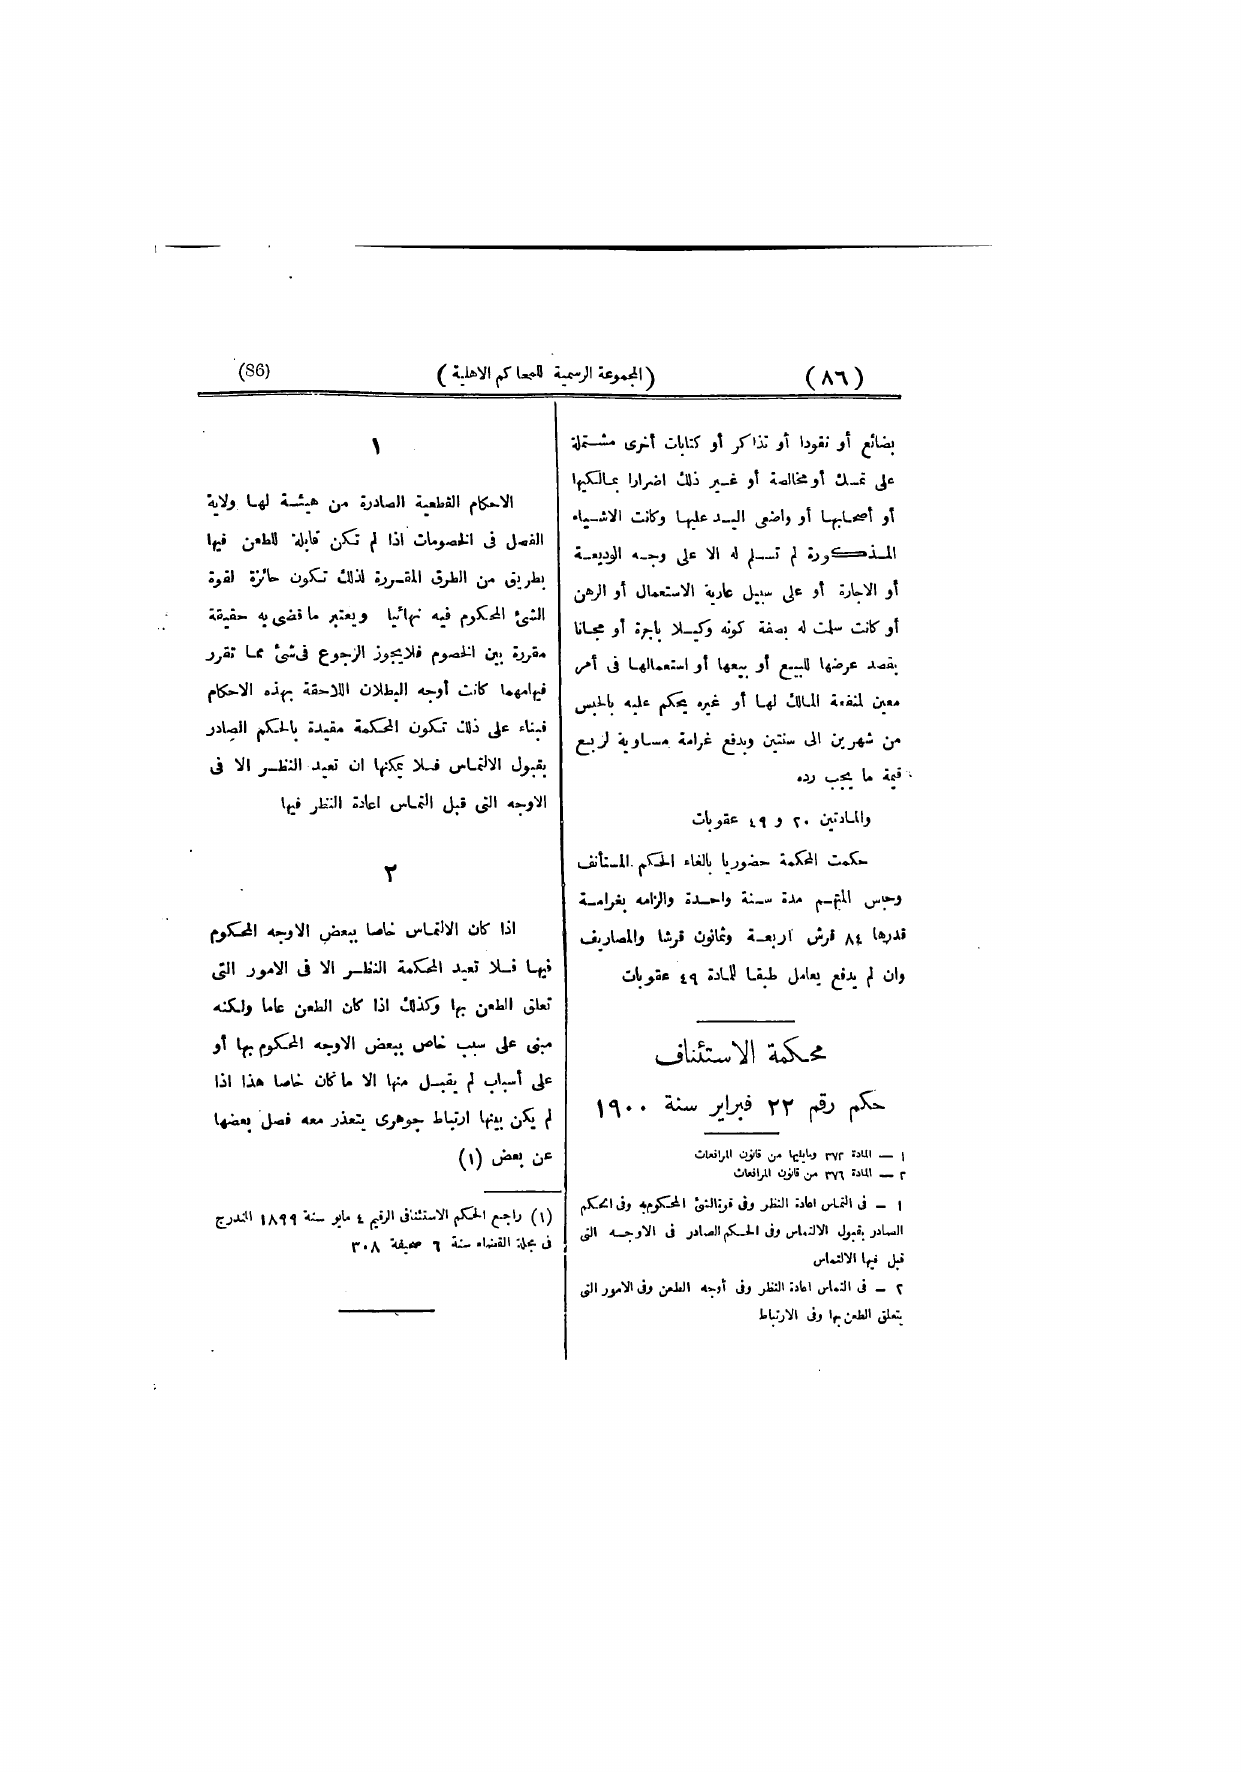 (٨٦) (المجموعة الرسمية للمحاكم الاهلية) (86)
بضائع أو نقودا أو تذاكر أو كتابات أخرى مشتملة
على تمسك أو مخالصة أو غير ذلك اضرارا بمالكيها
أو أصحابها أو واضعى اليد عليها وكانت الاشياء
المذكورة لم تسلم له الا على وجه الوديعة
أو الاجارة أو على سبيل عارية الاستعمال أو الرهن
أو كانت سلمت له بصفة كونه وكيلا باجرة أو مجانا
بقصد عرضها للبيع أو بيعها أو استعمالها فى أمر
معين لمنفعة المالك لها أو غيره يحكم عليه بالحبس
من شهرين الى سنتين وبدفع غرامة مساوية لربع
قيمة ما يجب رده
والمادتين ٢٠ و ٤٩ عقوبات
حكمت المحكمة حضوريا بالغاء الحكم المستأنف
وحبس المتهم مدة سنة واحدة والزامه بغرامة
قدرها ٨٤ قرش اربعة وثمانون قرشا والمصاريف
وان لم يدفع يعامل طبقا للمادة ٤٩ عقوبات
محكمة الاستئناف
حكم رقم ٢٢ فبراير سنة ١٩٠٠
١ — المادة ٣٧٢ ومايليها من قانون المرافعات
٢ — المادة ٣٧٦ من قانون المرافعات
١ — فى التماس اعادة النظر وفى قوة الشئ المحكوم به وفى الحكم
الصادر بقبول الالتماس وفى الحكم الصادر فى الاوجه التى
قبل فيها الالتماس
٢ — فى التماس اعادة النظر وفى أوجه الطعن وفى الامور التى
يتعلق الطعن بها وفى الارتباط
١
الاحكام القطعية الصادرة من هيئة لها ولاية
الفصل فى الخصومات اذا لم تكن قابلة للطعن فيها
بطريق من الطرق المقررة لذلك تكون حائزة لقوة
الشئ المحكوم فيه نهائيا ويعتبر ما قضى به حقيقة
مقررة بين الخصوم فلايجوز الرجوع فى شئ مما تقرر
فيها مهما كانت أوجه البطلان اللاحقة بهذه الاحكام
فبناء على ذلك تكون المحكمة مقيدة بالحكم الصادر
بقبول الالتماس فلا يمكنها ان تعيد النظر الا فى
الاوجه التى قبل التماس اعادة النظر فيها
٢
اذا كان الالتماس خاصا ببعض الاوجه المحكوم
فيها فلا تعيد المحكمة النظر الا فى الامور التى
تعلق الطعن بها وكذلك اذا كان الطعن عاما ولكنه
مبنى على سبب خاص ببعض الاوجه المحكوم بها أو
على أسباب لم يقبل منها الا ما كان خاصا هذا اذا
لم يكن بينها ارتباط جوهرى يتعذر معه فصل بعضها
عن بعض (١)
(١) راجع الحكم الاستئنافى الرقيم ٤ مايو سنة ١٨٩٩ المندرج
فى مجلة القضاء سنة ٦ صحيفة ٣٠٨